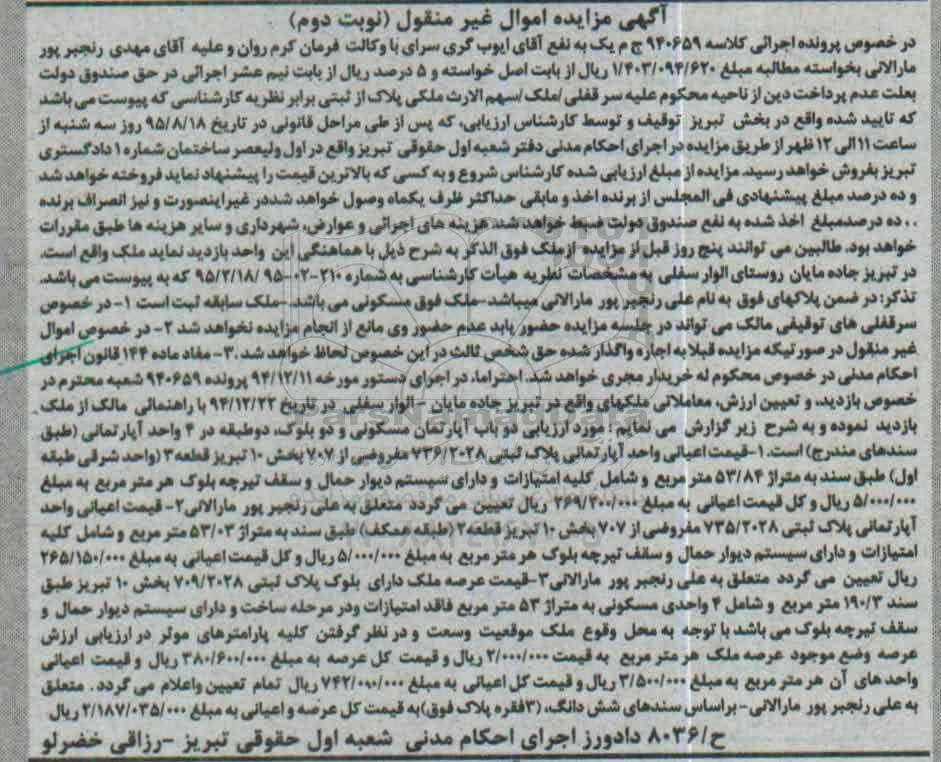 آگهی مزایده اموال غیر منقول (نوبت دوم)
در خصوص پرونده اجرائی کلاسه ۹۴۰۶۵۹ ج م یک به نفع آقای ایوب گری سرای با وکالت فرمان کرم روان و علیه آقای مهدی رنجبر پور
مارالانی بخواسته مطالبه مبلغ ۱/۴۰۳/۰۹۴/۶۲۰ ریال از بابت اصل خواسته و ۵ درصد ریال از بابت نیم عشر اجرائی در حق صندوق دولت
بعلت عدم پرداخت دین از ناحیه محکوم علیه سر قفلی/ملک/سهم الارث ملکی پلاک از ثبتی برابر نظریه کارشناسی که پیوست می باشد
که تایید شده واقع در بخش تبریز توقیف و توسط کارشناس ارزیابی، که پس از طی مراحل قانونی در تاریخ ۹۵/۸/۱۸ روز سه شنبه از
ساعت ۱۱ الی ۱۲ ظهر از طریق مزایده در اجرای احکام مدنی دفتر شعبه اول حقوقی تبریز واقع در اول ولیعصر ساختمان شماره ۱ دادگستری
تبریز بفروش خواهد رسید. مزایده از مبلغ ارزیابی شده کارشناس شروع و به کسی که بالاترین قیمت را پیشنهاد نماید فروخته خواهد شد
و ده درصد مبلغ پیشنهادی فی المجلس از برنده اخذ و مابقی حداکثر ظرف یکماه وصول خواهد شددر غیراینصورت و نیز انصراف برنده
.. ده درصدمبلغ اخذ شده به نفع صندوق دولت ضبط خواهد شد. هزینه های اجرائی و عوارض، شهرداری و سایر هزینه ها طبق مقررات
خواهد بود. طالبین می توانند پنج روز قبل از مزایده از ملک فوق الذکر به شرح ذیل با هماهنگی این واحد بازدید نماید ملک واقع است.
در تبریز جاده مایان روستای الوار سفلی به مشخصات نظریه هیأت کارشناسی به شماره ۲۱۰-۰۲-۹۵ ۹۵/۲/۱۸ که به پیوست می باشد.
تذکر: در ضمن پلاکهای فوق به نام علی رنجبر پور مارالانی میباشد-ملک فوق مسکونی می باشد. -ملک سابقه ثبت است ۱- در خصوص
سرقفلی های توقیفی مالک می تواند در جلسه مزایده حضور یابد عدم حضور وی مانع از انجام مزایده نخواهد شد ۲- در خصوص اموال
غیر منقول در صورتیکه مزایده قبلا به اجاره واگذار شده حق شخص ثالث در این خصوص لحاظ خواهد شد. ۳- مفاد ماده ۱۴۴ قانون اجرای
احکام مدنی در خصوص محکوم له خریدار مجری خواهد شد. احتراما، در اجرای دستور مورخه ۹۴/۱۲/۱۱ پرونده ۹۴۰۶۵۹ شعبه محترم در
خصوص بازدید، و تعیین ارزش، معاملاتی ملکهای واقع در تبریز جاده مایان - الوار سفلی در تاریخ ۹۴/۱۲/۲۲ با راهنمائی مالک از ملک
بازدید نموده و به شرح زیر گزارش می نمایم: مورد ارزیابی دو باب آپارتمان مسکونی و دو بلوک، دوطبقه در ۴ واحد آپارتمانی (طبق
سندهای مندرج) است. ۱-قیمت اعیانی واحد آپارتمانی پلاک ثبتی ۷۳۶/۲۰۲۸ مفروضی از ۷۰۷ بخش ۱۰ تبریز قطعه ۳ (واحد شرقی طبقه
اول) طبق سند به متراژ ۵۳/۸۴ متر مربع و شامل کلیه امتیازات و دارای سیستم دیوار حمال و سقف تیرچه بلوک هر متر مربع به مبلغ
۵/۰۰۰/۰۰۰ ریال و کل قیمت اعیانی به مبلغ ۲۶۹/۲۰۰/۰۰۰ ریال تعیین می گردد متعلق به علی رنجبر پور مارالانی ۲- قیمت اعیانی واحد
آپارتمانی پلاک ثبتی ۷۳۵/۲۰۲۸ مفروضی از ۷۰۷ بخش ۱۰ تبریز قطعه ۲ (طبقه همکف) طبق سند به متراژ ۵۳/۰۳ متر مربع و شامل کلیه
امتیازات و دارای سیستم دیوار حمال و سقف تیرچه بلوک هر متر مربع به مبلغ ۵/۰۰۰/۰۰۰ ریال و کل قیمت اعیانی به مبلغ ۲۶۵/۱۵۰/۰۰۰
ریال تعیین می گردد متعلق به علی رنجبر پور مارالانی ۳-قیمت عرصه ملک دارای بلوک پلاک ثبتی ۷۰۹/۲۰۲۸ بخش ۱۰ تبریز طبق
سند ۱۹۰/۳ متر مربع و شامل ۴ واحدی مسکونی به متراژ ۵۳ متر مربع فاقد امتیازات ودر مرحله ساخت و دارای سیستم دیوار حمال و
سقف تیرچه بلوک می باشد با توجه به محل وقوع ملک موقعیت وسعت و در نظر گرفتن کلیه پارامترهای موثر در ارزیابی ارزش
عرصه وضع موجود عرصه ملک هر متر مربع به قیمت ۲/۰۰۰/۰۰۰ ریال و قیمت کل عرصه به مبلغ ۳۸۰/۶۰۰/۰۰۰ ریال و قیمت اعیانی
واحد های آن هر متر مربع به مبلغ ۳/۵۰۰/۰۰۰ ریال و قیمت کل اعیانی به مبلغ ۷۴۲/۰۰۰/۰۰۰ ریال تمام تعیین واعلام می گردد. متعلق
به علی رنجبر پور مارالانی- براساس سندهای شش دانگ، (۳فقره پلاک فوق) به قیمت کل عرصه و اعیانی به مبلغ ۲/۱۸۷/۰۳۵/۰۰۰ ریال
ح/۸۰۳۶ دادورز اجرای احکام مدنی شعبه اول حقوقی تبریز -رزاقی خضرلو